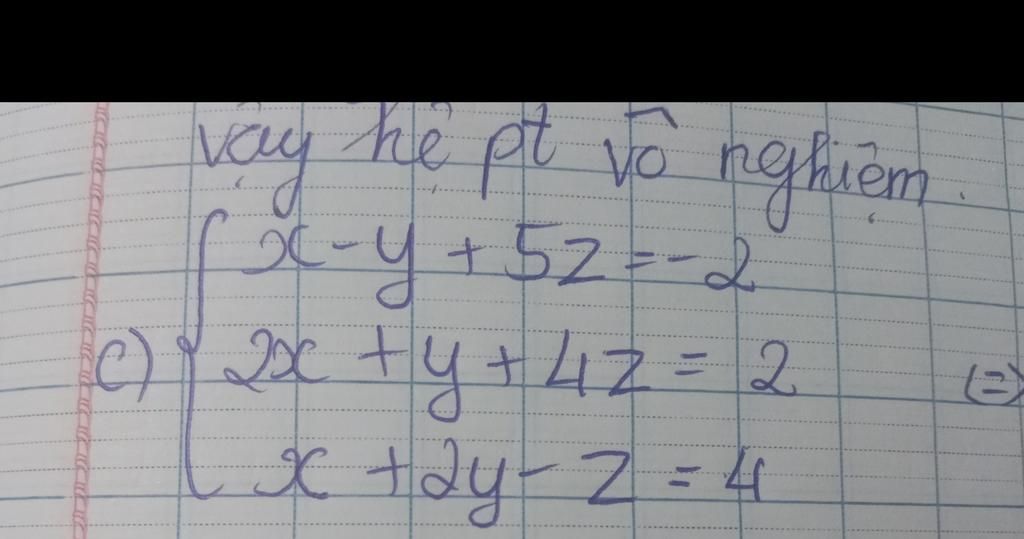 vậy hệ pt vô nghiệm.
x - y + 5z = -2
c) { 2x + y + 4z = 2 (=>
x + 2y - z = 4